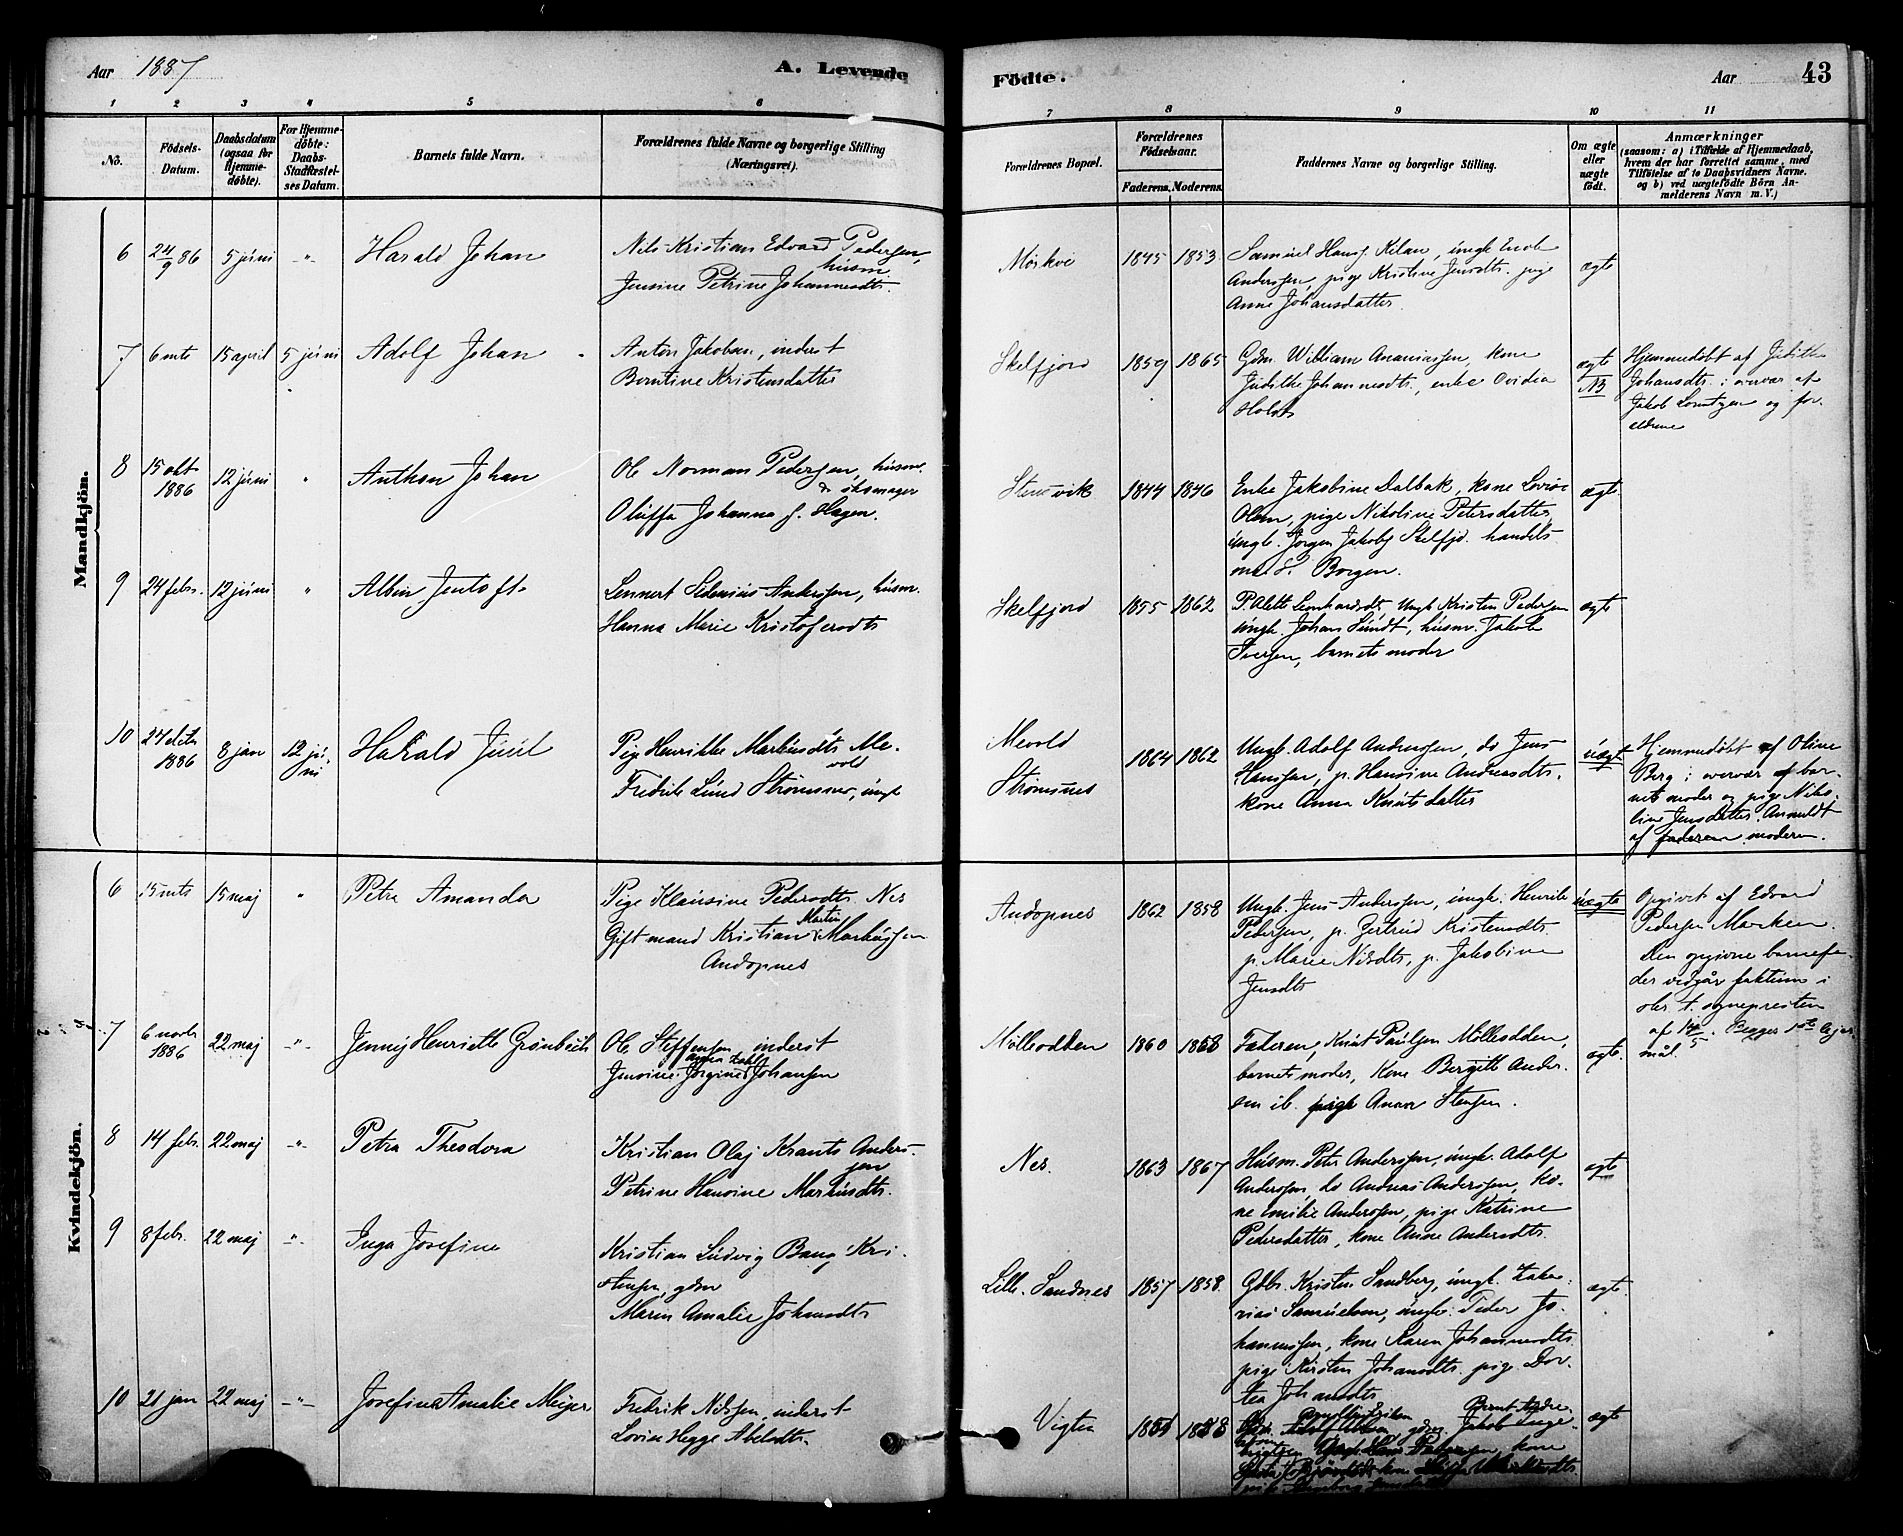 Aar 1887
A. Levende
Födte.
Aar
43
1 2 3 4 5 6 7 8 9 10 11
No.
Födsels-Datum.
Daabsdatum (ogsaa for Hjemmedöbte).
For Hjemmedöbte: Daabs-Stadfæstelses Datum.
Barnets fulde Navn.
Forældrenes fulde Navne og borgerlige Stilling (Næringsvei).
Forældrenes Bopæl.
Forældrenes Födselsaar.
Faderens. Moderens.
Faddernes Navne og borgerlige Stilling.
Om ægte eller uægte födt.
Anmærkninger
(saasom: a) i Tilfælde af Hjemmedaab, hvem der har forrettet samme, med Tilföielse af to Daabsvidners Navne. og b) ved uægtefödte Börn Anmelderens Navn m. V.)
Mandkjön.
6 24/9 86 5 juni -"- Harald Johan
Nils Kristian Edvard Pedersen, husm.
Jensine Petrine Johannesdtr.
1845 1853
Samuel Hansj. Kilan, ungk. Enok
Andersen, pige Kristine Jensdtr. pige
Anne Johansdatter
ægte
7 6 mts 15 april 5 juni Adolf Johan
Anton Jakobsen, inderst
Berntine Kristensdatter
Skelfjord 1859 1865
Gdm. William Ananiassen, kone
Judithe Johannesdtr., enke Ovidia
Holst
ægte
NB
Hjemmedöbt af Judithe
Johansdtr. i overvær af
Jakob Lorntzen og for-
ældrene
8 15 okt 1886 12 juni " Anthon Johan
Ole Norman Pedersen, husm.
& öksmager
Oluffa Johanna f. Hagen.
Stensvik 1844 1846
Enke Jakobine Dalbak, kone Lovise
Olsen, pige Nikoline Petersdatter
ungk. Jörgen Jakobs. Skelfjd. handels
Borgen.
ægte
9 24 febr. 12 juni " Albin Jentoft
Lennert Sidenius Andersen, husm.
Hanna Marie Kristofersdtr
Skelfjord 1855 1862
P. Alette Lenhardsdtr, Ungk Kristen Pedersen
ungk. Johan Sundt, husm. Jakob
Iversen, barnets moder
ægte
10 27 oktb 1886 8 jan 12 juni Harald Juul
Pige Henrikke Markusdtr Mevold
Fredrik Lund Strömsnes, ungk
Mevold
Strömsnes
1864 1862
Ungk. Adolf Andersen, do Jens
Hansen, p. Hansine Andreasdtr.
kone Anna Knutsdatter
uægte
Hjemmedöbt af Oline
Berg i overvær af bar-
nets moder og pige Niko-
line Jensdatter. Anmeldt
af faderen moderen.
Kvindekjön.
6 15 mts 15 maj " Petra Amanda
Pige Klausine Pedersdtr. Nes
Gift mand Kristian Martin Markussen
Andopnes
Andopnes 1862 1858
Ungk. Jens Andersen, ungk. Henrik
Pedersen, p. Gertrud Kristensdtr.
p. Maree Nilsdtr, p. Jakobine
Jensdtr
uægte
Opgivet af Edvard
Pedersen
Den opgivne barnefa-
der vedgår faktum i
sognepresten
af 14/5. Begges 1ste lejer
mål.
7 6 novbr 1886 22 maj -"- Jenny Henriette Grönbech
Ole Steffensen, inderst
Jensine Jörgine Johansen
Mölleodden 1860 1868
Faderen, Knut Paulsen Mölleodden,
barnets moder, kone Bergitte Ander-
sen ib. pige Anna Stensen.
ægte.
8 14 feb. 22 maj -"- Petra Theodora
Kristian Olaj Krants Andersen
Petrine Hansine Markusdtr.
Nes. 1863 1867
Husm. Peter Andersen, ungk. Adolf
Andersen, do Andreas Andersen, ko-
ne Emilie Andersen, pige Katrine
Pedersdatter, kone Anne Andersdtr.
ægte
9 8 feb. 22 maj -"- Inga Josefine
Kristian Ludvig Bang Kri-
stensen, gdbr
Maren Amalie Johansdtr
Lille Sandnes 1857 1858
Gdbr. Kristen Sandberg, ungk. Zaka-
rias Samuelsen, ungk. Peder Jo-
hannessen, kone Karen Johannesdtr.
pige Kirsten Johansdtr. pige Dor-
tea Johansdtr
ægte.
10 21 jan 22 maj -"- Josefine Amalie Meijer
Fredrik Nilssen, inderst
Lovise Hegge Abelsdtr.
Vigten
Jakob Inge
kone
ægte